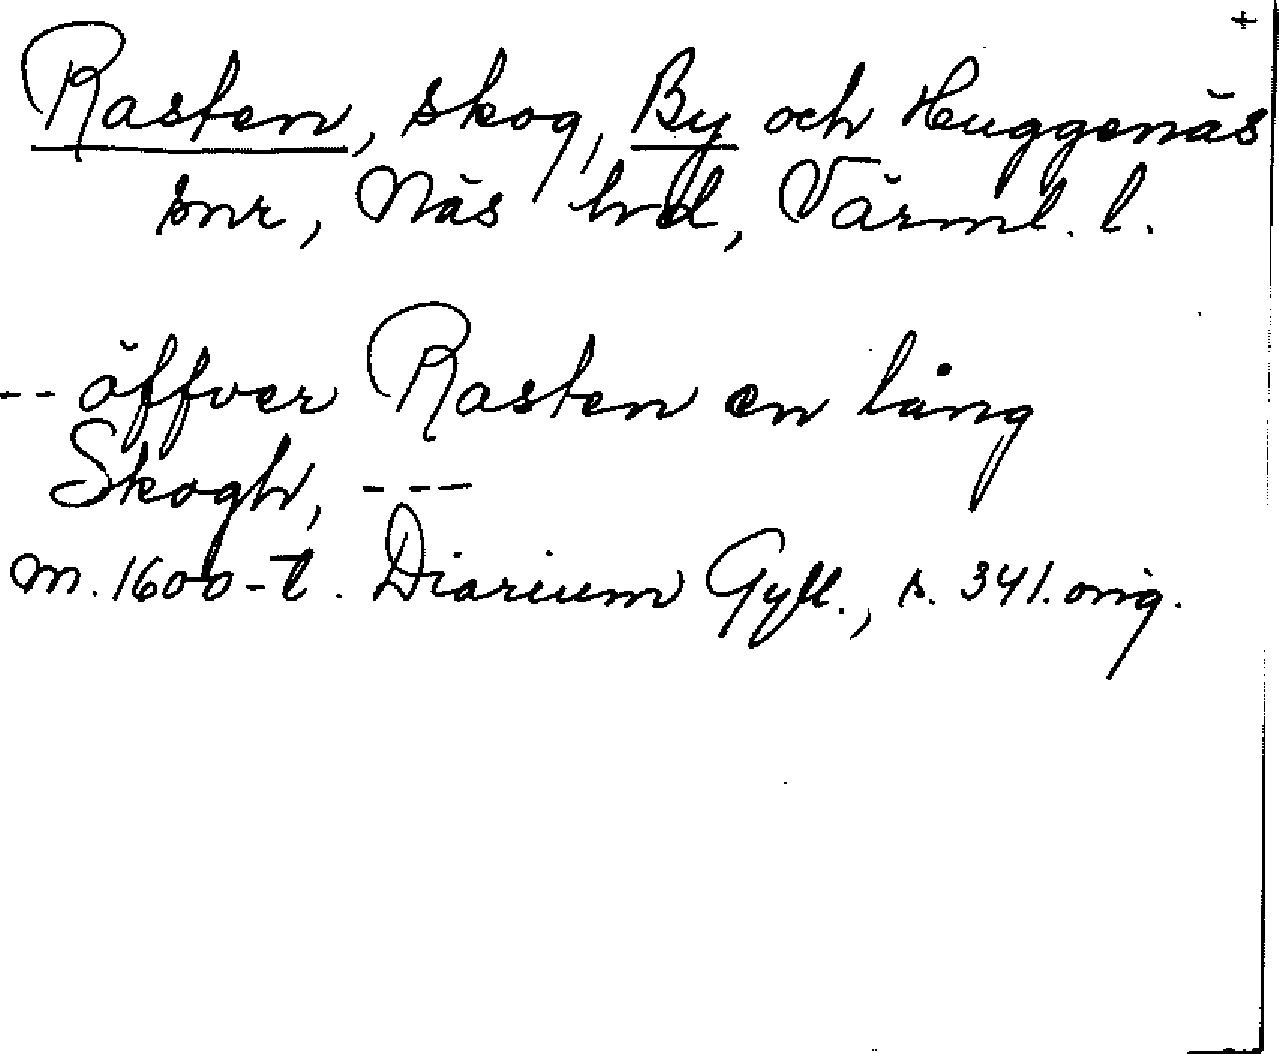 +
Rasten, skog, By och Huggenäs
snr, Näs hd, Värml. l.
-- öffver Rasten en lång
Skogh, ---
m. 1600-t. Diarium Gyll., s. 341. orig.